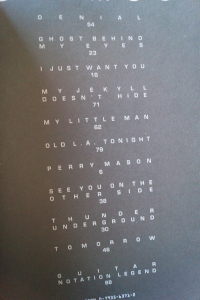 DENIAL
54
GHOST BEHIND
MY EYES
23
I JUST WANT YOU
16
MY JEKYLL
DOESN'T HIDE
71
MY LITTLE MAN
62
OLD L.A. TONIGHT
79
PERRY MASON
5
SEE YOU ON THE
OTHER SIDE
38
THUNDER
UNDERGROUND
30
TOMORROW
46
GUITAR
NOTATION LEGEND
88